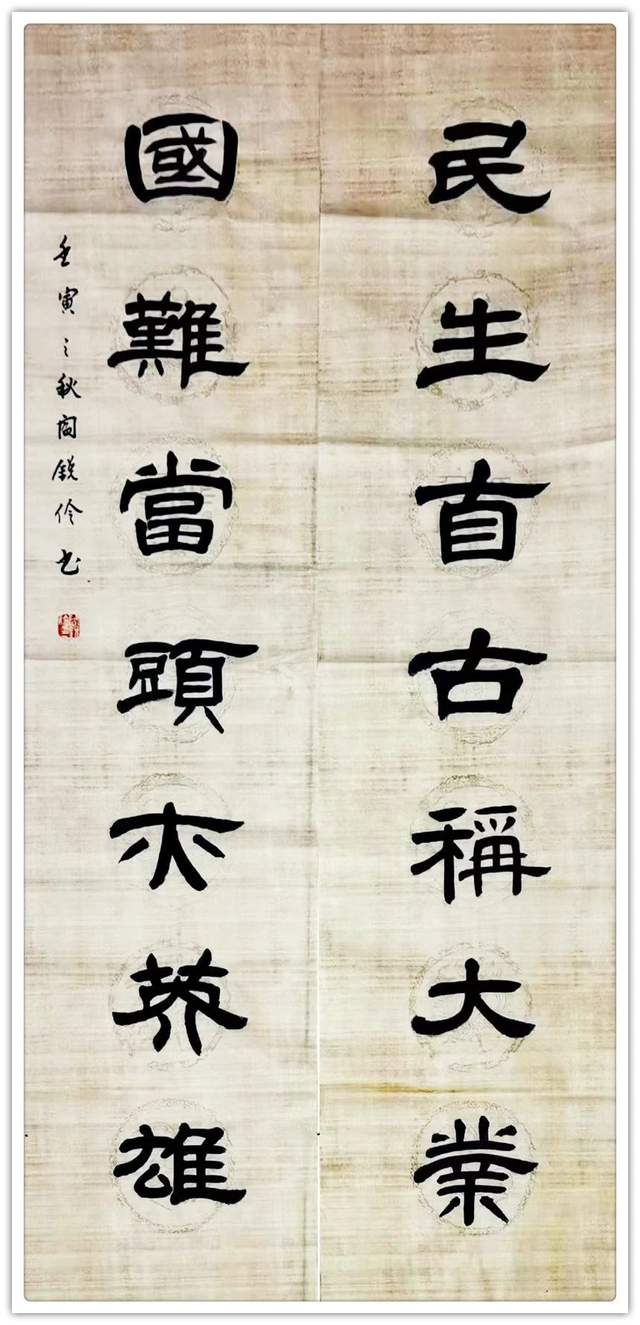 民生自古稱大業
國難當頭亦英雄
壬寅之秋阎銳伶书